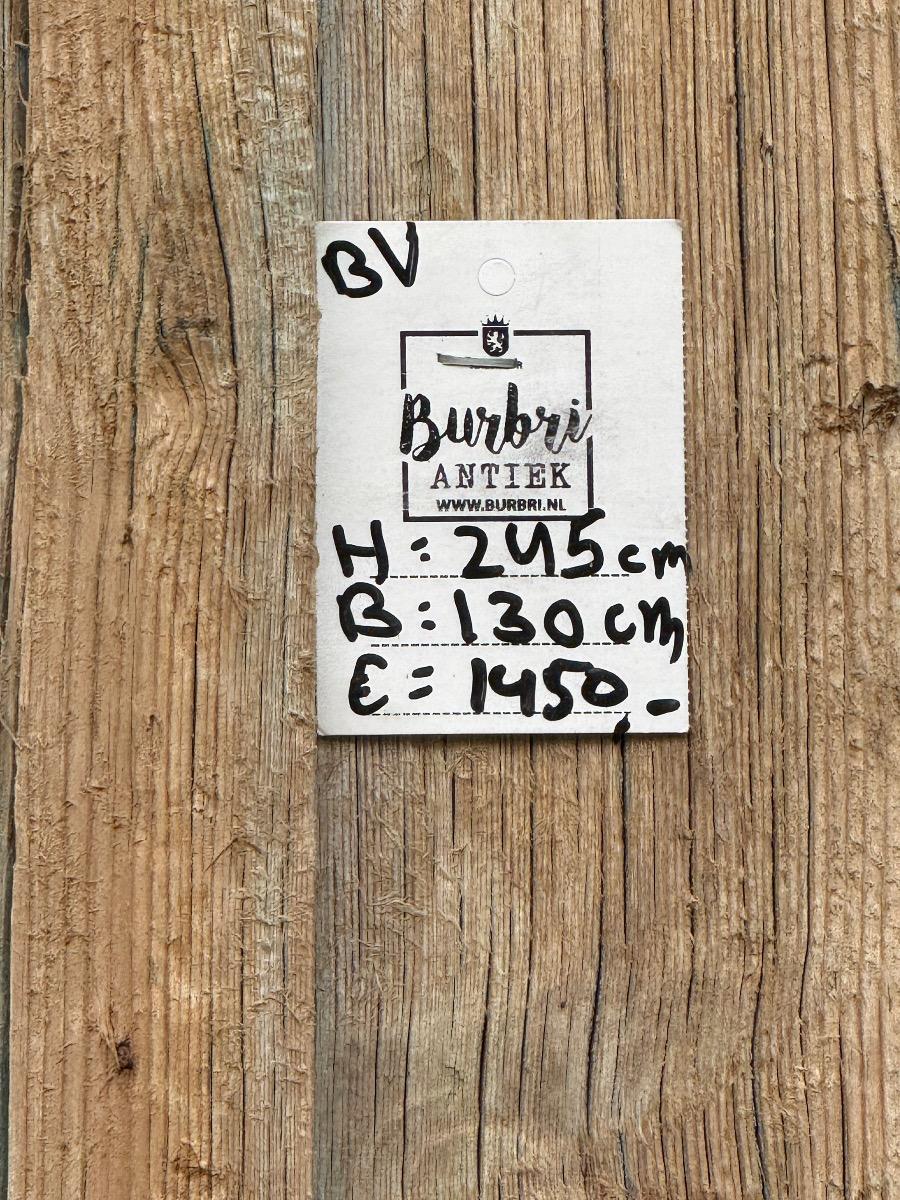 BV
Burbri
ANTIEK
WWW.BURBRI.NL
H: 245 cm
B: 130 cm
€= 1450,-